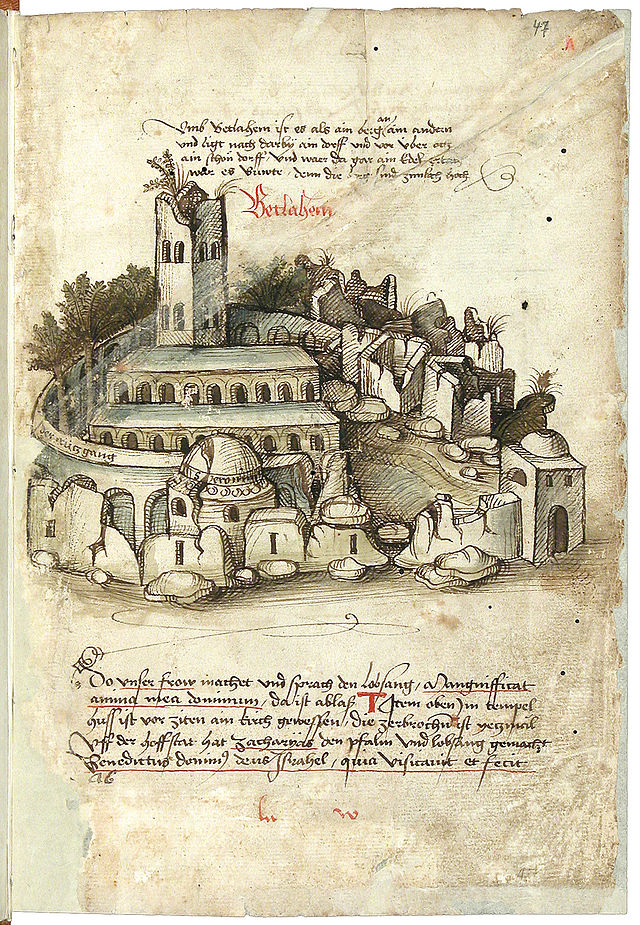 47
A
Vmb Betlahem ist es als ain berg an aim andern
und ligt nach darby ain dorff und vor über och
ain schon dorff und waer da gar ain Edel
wär es denn die sind zimlich hoch
Betlahem
gang
Do unser frow machet und sprach den lobsang / Mangnifficat
anima mea dominum, da ist ablaß Item oben im tempel
huss ist vor ziten ain kirch gewessen, die zerbrochen ist yeczmal
Uff der hoffstat hat Zacharyas den psalm und lobsang gemacht
Benedictus dominus deus Israhel, quia visitavit et fecit
46